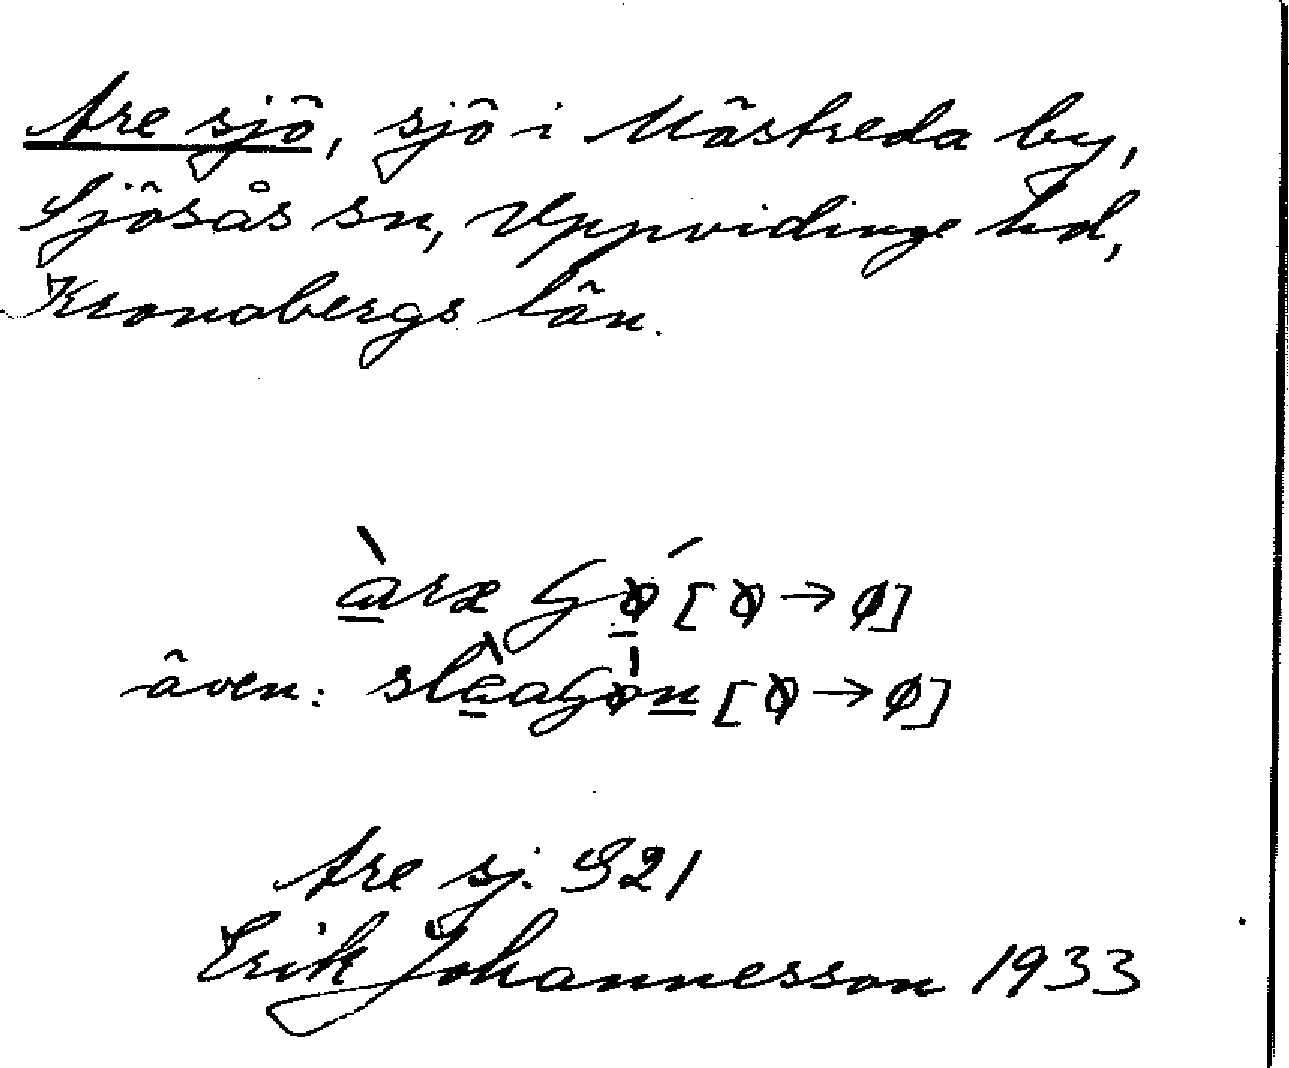 Are sjö, sjö i Nöstreda by,
Sjösås sn, Uppvidinge hd,
Kronobergs län.
även:
Are sj. S21
Erik Johannesson 1933